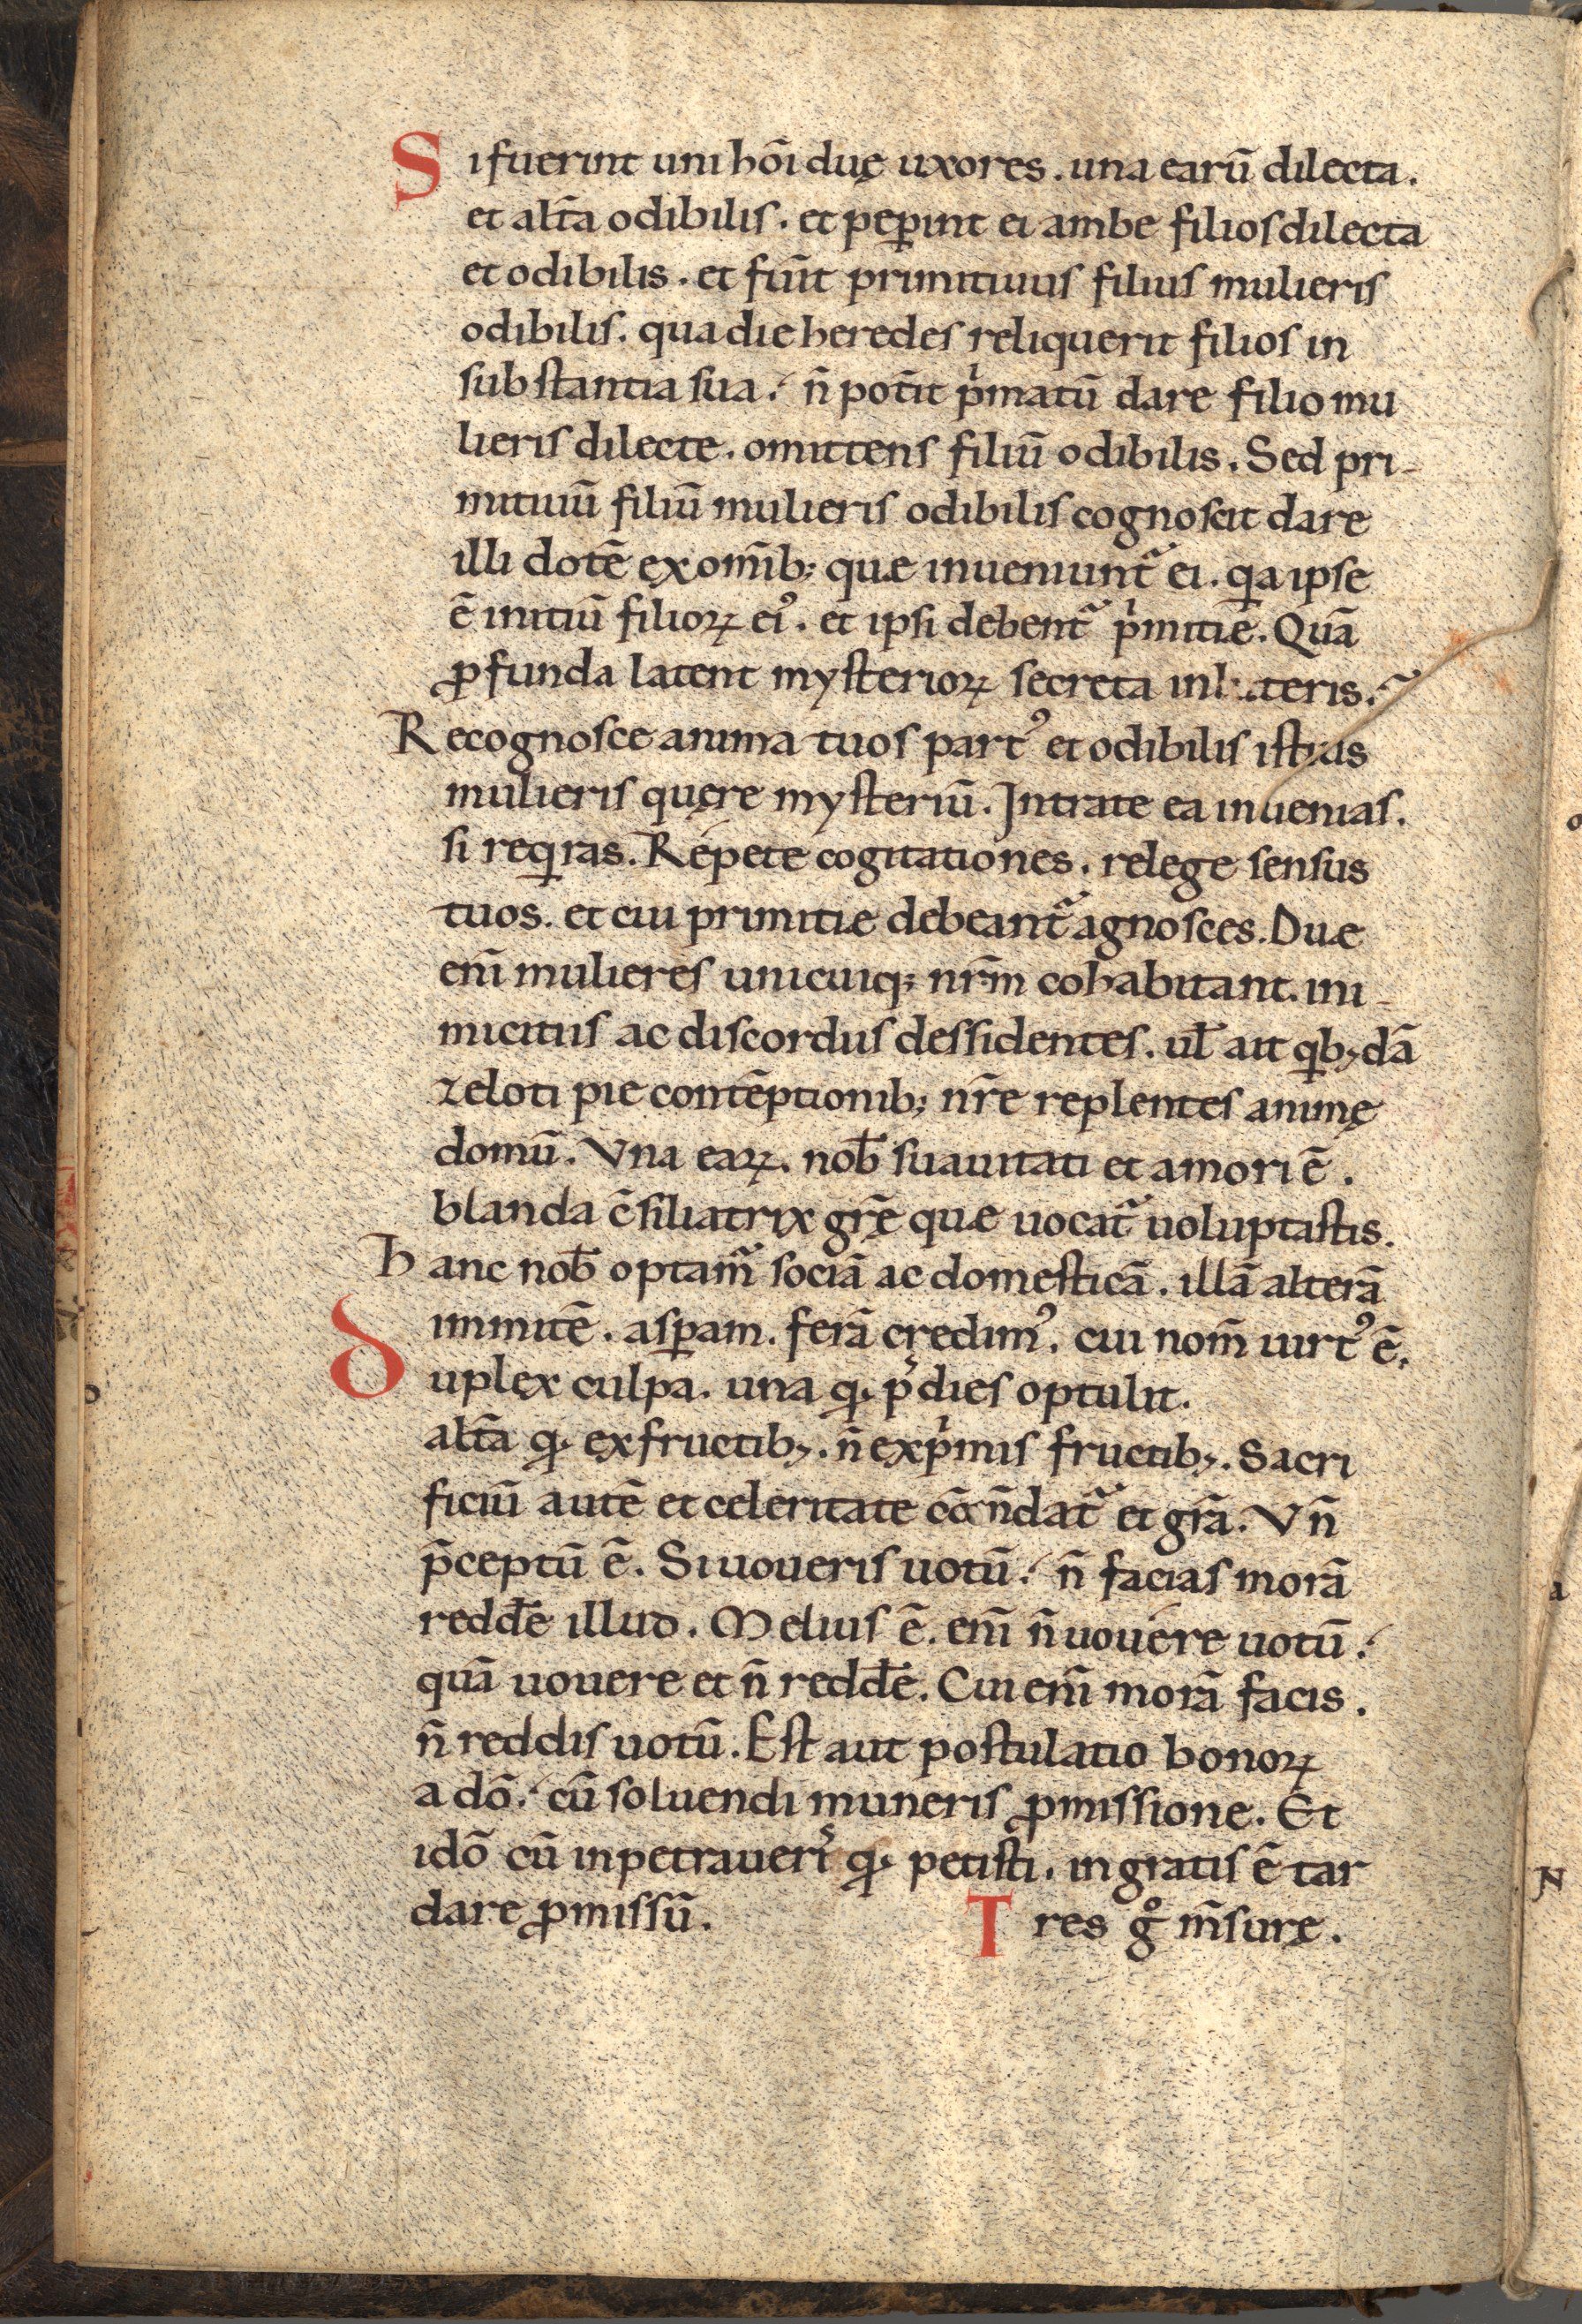 Si fuerint uni hōi duę uxores . una earū dilecta .
et alt̄a odibilis . et pep̱int ei ambe filios dilecta
et odibilis . et fūit primitiuus filius mulieris
odibilis . qua die heredes reliquerit filios in
substantia sua . n̄ pot̄it pͥmatū dare filio mu
lieris dilecte . omittens filiū odibilis . Sed pri-
mitiuū filiū mulieris odibilis cognoscit dare
illi dotē ex om̄ib; quæ inueniunt᷑ ei . qa ipse
ē initiū filioꝝ eiꝰ . et ipsi debent᷑ pͥmitiæ . Quā
ꝓfunda latent mysterioꝝ secreta in teris .
Recognosce anima tuos partꝰ et odibilis istius
mulieris quęre mysteriū . Intra te ea inuenias .
si reqͥras . Repete cogitationes . relege sensus
tuos . et cui primitiæ debeant᷑ agnosces . Duæ
eni̅ mulieres unicuiq; nr̄m cohabitant . ini-
micitiis ac discordiis dessidentes . ul̄ ait qͥbꝫdā
zeloti pie contēptionib; nr̄e replentes animę
domū . Vna eaꝝ . nob̄ suauitati et amori ē .
blanda c̄siliatrix gr̄ę quæ uocat᷑ uoluptastis .
Hanc nob̄ optam᷑ sociā ac domesticā . illā alterā
immitē . asꝑam . ferā credimꝰ . cui nom̄ uirtꝰ ē .
Duplex culpa . una qͩ p̱ dies optulit .
alt̄a qͩ ex fructibꝫ . n̄ ex pͥmis fructibꝫ . Sacri
ficiū autē et celeritate cōm̄dat᷑ et gr̄a . Vn̄
p̄ceptū ē . Si uoueris uotū . n̄ facias morā
redd̄e illud . Melius ē . eni̅ n̄ uouere uotū .
quā uouere et n̄ redd̄e . Cui eni̅ morā facis .
n̄ reddis uotū . Est aut postulatio bonoꝝ
a dō . cū soluendi muneris ꝓmissione . Et
idō cū inpetraueriˢ qͩ petisti . ingratis ē tar
dare ꝓmissū . Tres gͦ m̄surę .